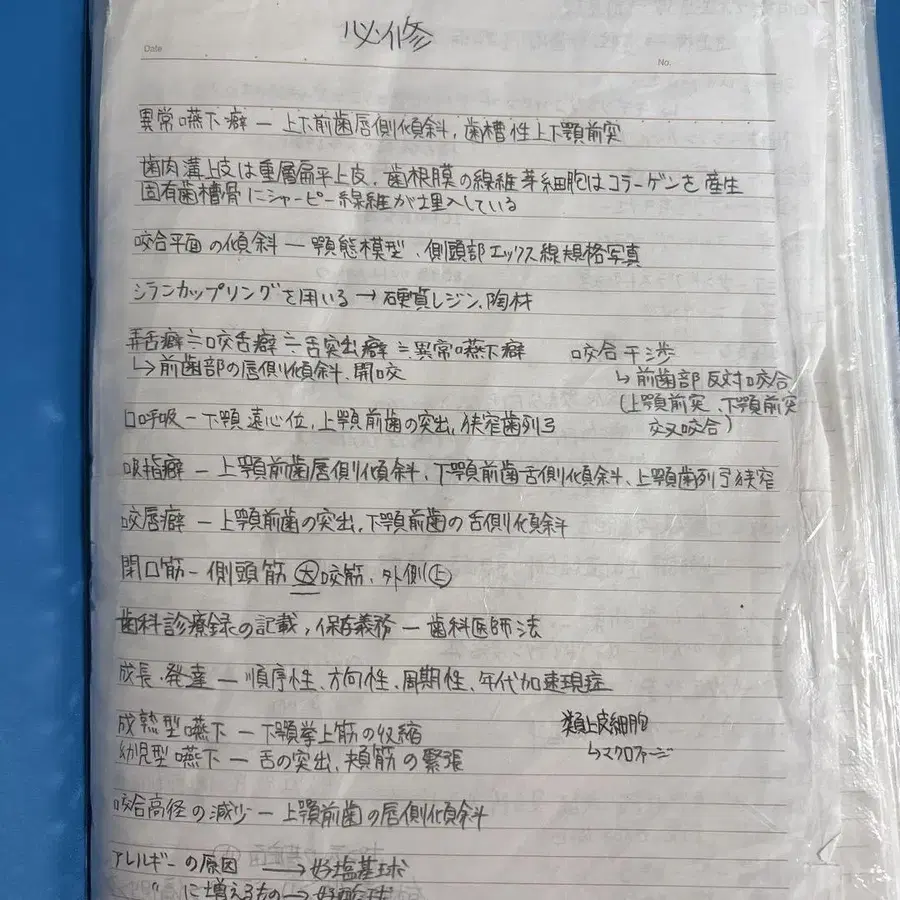 必修
Date
No.
異常嚥下癖 ― 上下前歯唇側傾斜, 歯槽性上下顎前突
歯肉溝上皮は重層扁平上皮. 歯根膜の線維芽細胞はコラーゲンを産生
固有歯槽骨にシャーピー線維が埋入している
咬合平面の傾斜 ― 顎態模型、側頭部エックス線規格写真
シランカップリングを用いる → 硬質レジン、陶材
弄舌癖≒咬舌癖≒舌突出癖≒異常嚥下癖
↳前歯部の唇側傾斜、開咬
咬合干渉
↳前歯部反対咬合
(上顎前突、下顎前突
交叉咬合)
口呼吸 ― 下顎遠心位, 上顎前歯の突出, 狭窄歯列弓
吸指癖 ― 上顎前歯唇側傾斜、下顎前歯舌側傾斜、上顎歯列弓狭窄
咬唇癖 ― 上顎前歯の突出, 下顎前歯の舌側傾斜
閉口筋 ― 側頭筋 大 咬筋、外側上
歯科診療録の記載, 保存義務 ― 歯科医師法
成長・発達 ― 順序性、方向性、周期性、年代加速現症
成熟型嚥下 ― 下顎挙上筋の収縮
幼児型嚥下 ― 舌の突出、頬筋の緊張
類上皮細胞
↳マクロファージ
咬合高径の減少 ― 上顎前歯の唇側傾斜
アレルギーの原因 → 好塩基球
〃 に増えるもの → 好酸球